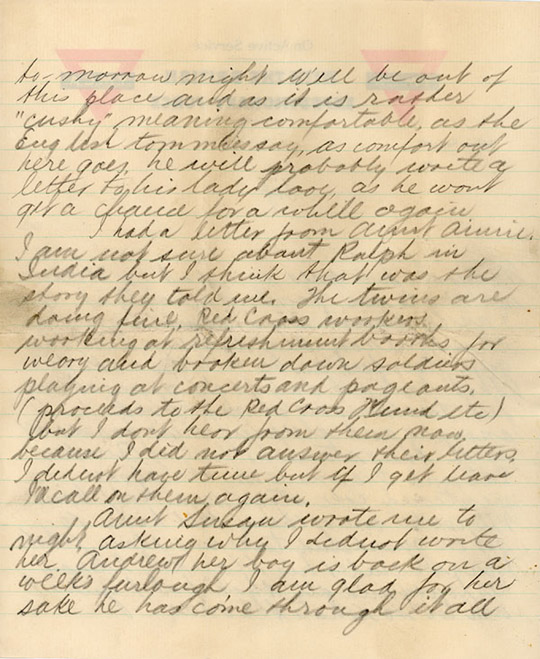 to-morrow night we'll be out of
this place and as it is rather
"cushy" meaning comfortable, as the
English tommies say, as comfort out
here goes, he will probably write a
letter to his lady love, as he wont
get a chance for a while again
I had a letter from Aunt Annie.
I am not sure about Ralph in
India but I think that was the
story they told me. The twins are
doing fine, Red Cross workers,
working at refreshment booths for
weary and broken down soldiers
playing at concerts and pageants.
(proceeds to the Red Cross Fund etc)
but I don't hear from them now
because I did not answer their letters
I did not have time but if I get leave
I'll call on them again.
Aunt Susan wrote me to
night, asking why I did not write
her. Andrew her boy is back on a
weeks furlough I am glad for her
sake he has come through it all
On Active Service